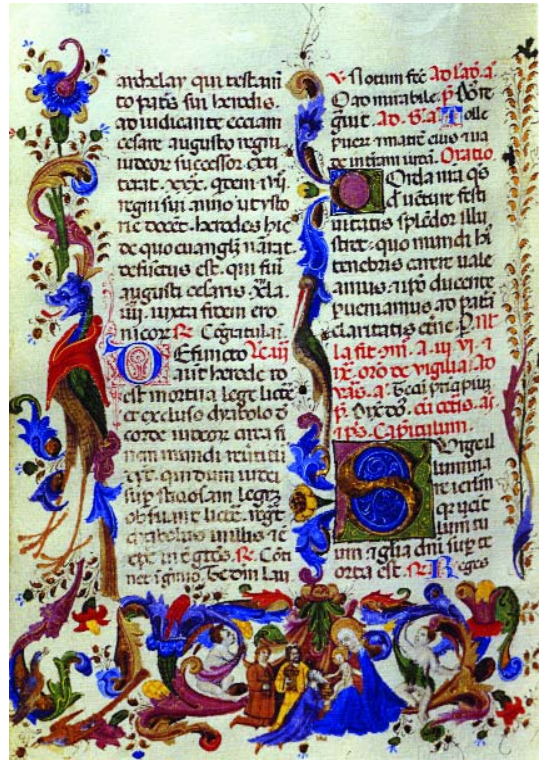 archelay qui testam̄
to patis sui herodis.
adiudicante ecciam
cesare augusto regni
iudeor successor exti
terat. xxx.
regni sui anno ut ysto
rie docēt. herodes hic
de quo euanglȝ narrat
defunctus est. qui fuit
augusti cesaris xla.
iiij. iuxta fidem cro
nicor R. Cōgratulai.
Defuncto Lc. iij
aut herode
est mortua lege litte
et excluso dyabolo d
corde iudeor circa fi
nem mundi
qui dum iudei
legis
obsuant litte. regt
dyabolus in illis
R. Cōti
net i gmio.
v. Notum fec̄ Ad lad. a.
O admirabile. p̄. Dn̄s re
gnit. Ad. B. a. Tolle
puer z matre eius z ua
de in tiam isrl. Oratio.
Corda nr̄a qs
d uēture festi
uitatis splēdor illu
stret. quo mundi hȝ
tenebris carere uale
amus. z ipo ducente
pueniamus ad patiā
claritatis et̄ne. P.
la fit
ix. oro de vigilia. ad
vās. a. Tecū principiū
p̄. Dix dn̄s. cū cet̄is. ac
z ps. Capitulum.
Surge il
lumina
re iersm̄
q ueit
lum tu
um z glia dn̄i sup te
orta est. R. Reges